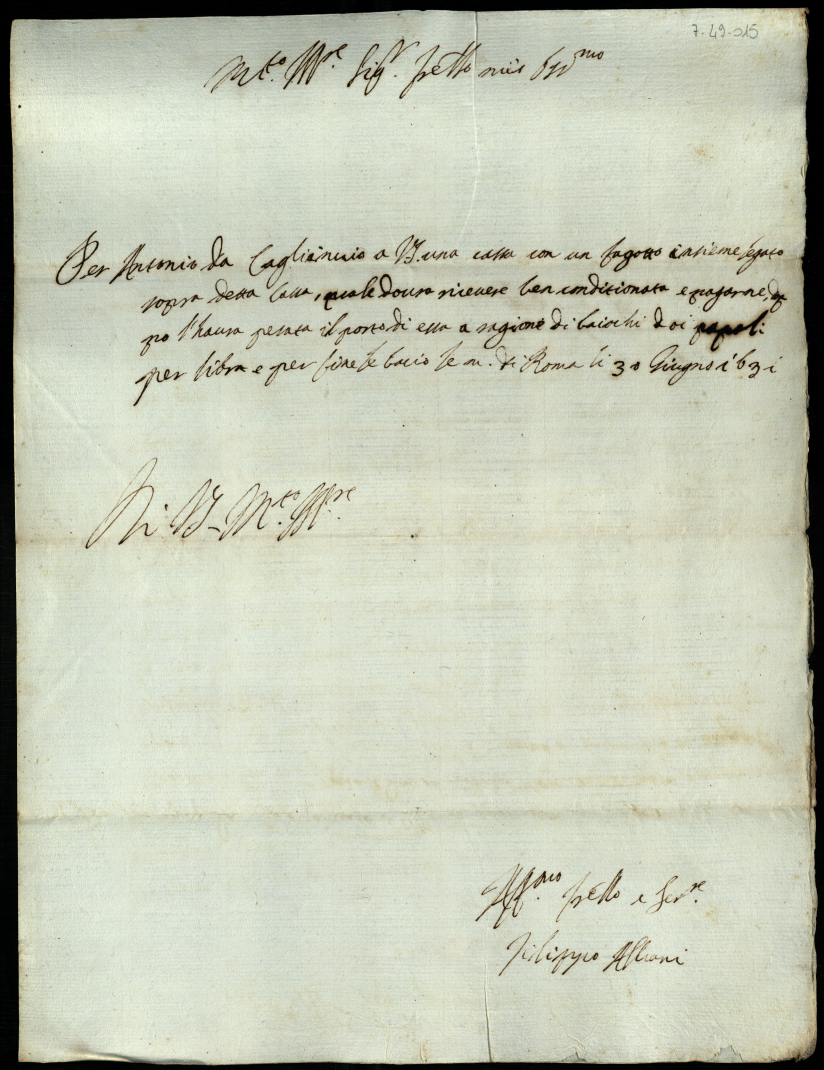 7-49-015
M.to Ill.re Sig.r fr̃ello mio oss.mo
Per Antonio da Caglie inuio a VS. una cassa con un fagotto insieme legato
sopra detta cassa, quale dourà riceuere ben conditionata e pagarne, do
po l'haura pesata il porto di essa a ragione di baiochi doi
per libra e per fine le bacio le m. di Roma li 30 Giugno 1631
Di VS. M.to Ill.re
Aff.mo fr̃ello e Ser.re
Filippo Albani